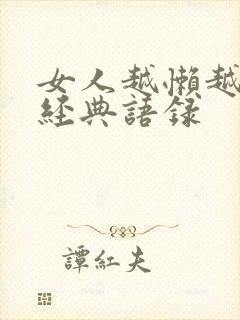 女人越懶越
經典語录
譚紅夫